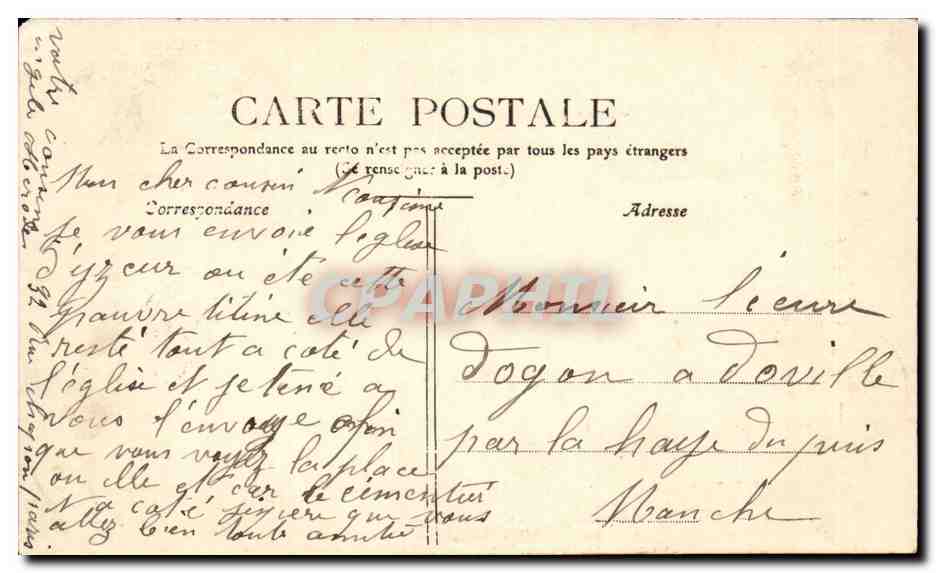 CARTE POSTALE
La Correspondance au recto n'est pas acceptée par tous les pays étrangers
(Se renseigner à la poste)
Correspondance
Adresse
Mon cher cousin
cousine
je vous envoie l'eglise
d'yzeur ou été cette
pauvre titine elle
resté tout a coté de
l'église et je tené a
vous l'envoyé afin
que vous voyez la place
ou elle et car le cementier
et a coté j'espere que vous
allez bien toute amitié
votre cousine
92 Rue /paris
Monsieur l'écure
Dogon a Doville
par la haye du puis
Manche
CPAPHIL